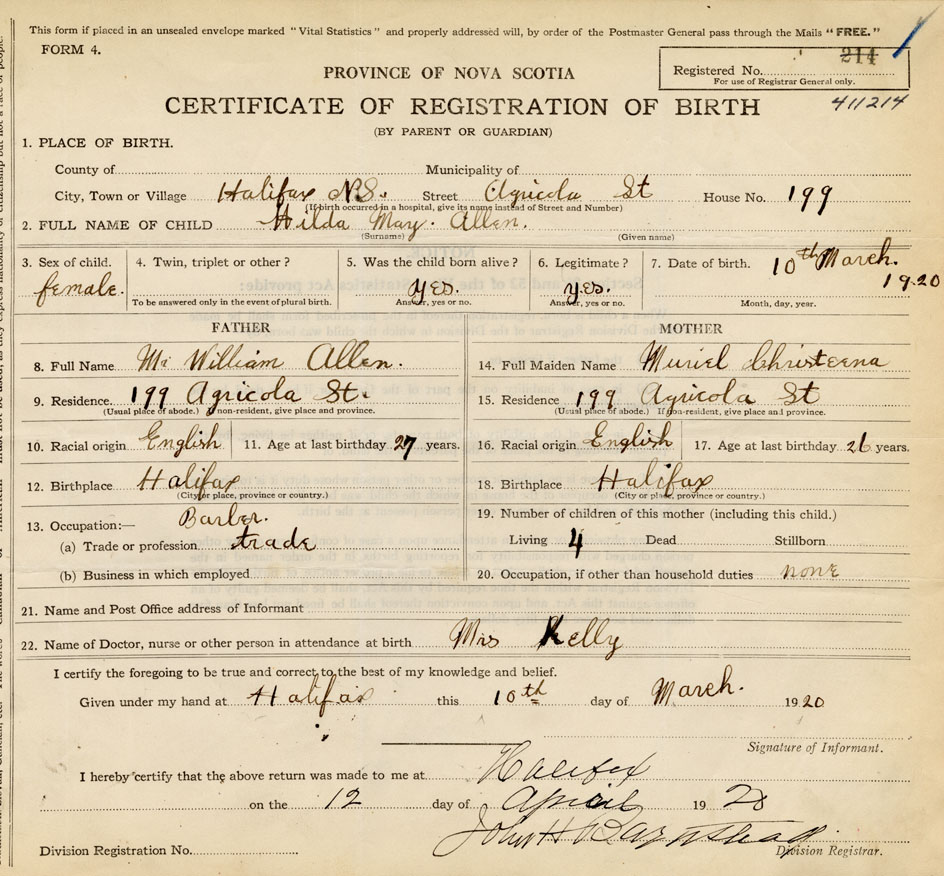 This form if placed in an unsealed envelope marked "Vital Statistics" and properly addressed will, by order of the Postmaster General pass through the Mails "FREE."
FORM 4.
PROVINCE OF NOVA SCOTIA
Registered No. 214
For use of Registrar General only.
CERTIFICATE OF REGISTRATION OF BIRTH
411214
(BY PARENT OR GUARDIAN)
1. PLACE OF BIRTH.
County of Municipality of
City, Town or Village Halifax N.S. Street Agricola St House No. 199
(If birth occurred in a hospital, give its name instead of Street and Number)
2. FULL NAME OF CHILD Hilda May. Allen.
(Surname) (Given name)
3. Sex of child. female.
4. Twin, triplet or other?
To be answered only in the event of plural birth.
5. Was the child born alive? yes.
Answer, yes or no.
6. Legitimate? yes.
Answer, yes or no.
7. Date of birth. 10th March. 1920
Month, day, year.
FATHER
8. Full Name Mr William Allen.
9. Residence. 199 Agricola St.
(Usual place of abode.) If non-resident, give place and province.
10. Racial origin English 11. Age at last birthday 27 years.
12. Birthplace Halifax
(City or place, province or country.)
13. Occupation:— Barber.
(a) Trade or profession trade
(b) Business in which employed
MOTHER
14. Full Maiden Name Muriel Christeena
15. Residence 199 Agricola St
(Usual place of abode.) If non-resident, give place and province.
16. Racial origin English 17. Age at last birthday 26 years.
18. Birthplace Halifax
(City or place, province or country.)
19. Number of children of this mother (including this child.)
Living 4 Dead Stillborn
20. Occupation, if other than household duties none
21. Name and Post Office address of Informant
22. Name of Doctor, nurse or other person in attendance at birth Mrs Kelly
I certify the foregoing to be true and correct to the best of my knowledge and belief.
Given under my hand at Halifax this 10th day of March. 1920
Signature of Informant.
I hereby certify that the above return was made to me at Halifax
on the 12 day of April 1920
John H Barnstead
Division Registration No. Division Registrar.